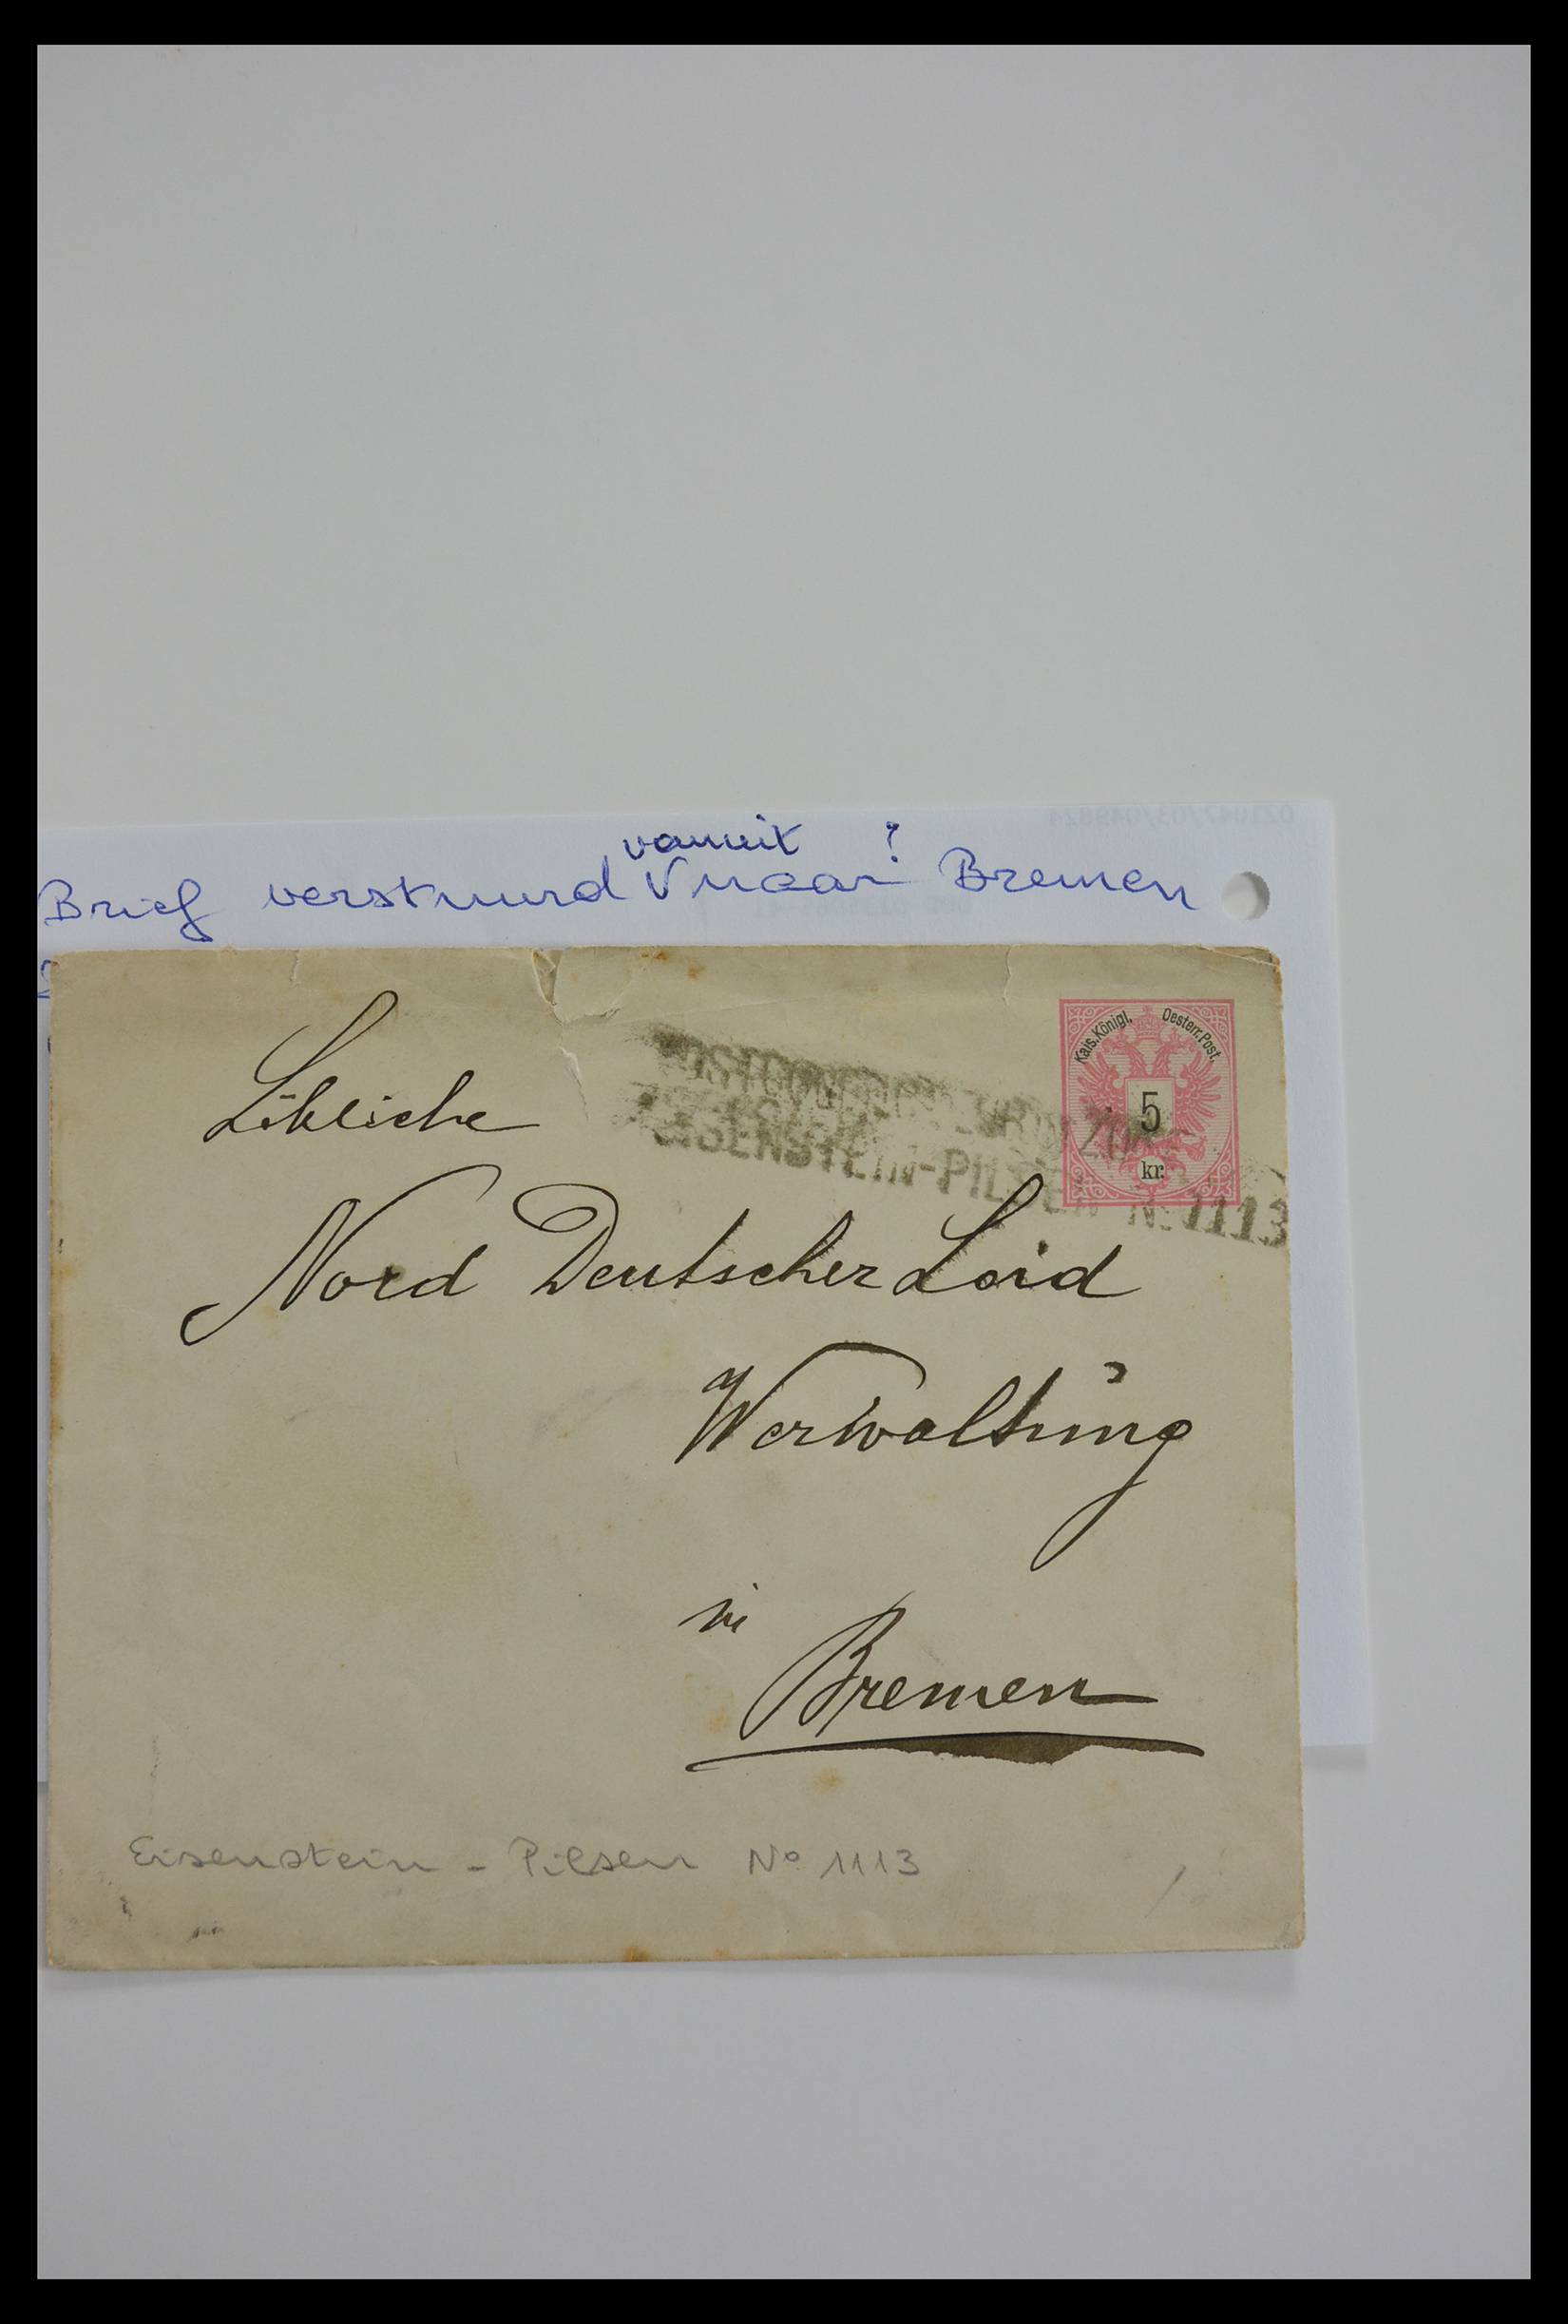 vanuit ?
Brief verstuurd V naar Bremen
Löbliche
Kais. Königl. Oesterr. Post.
5
kr.
EISENSTEIN-PILSEN No 1113
Nord Deutscher Loid
Werwaltŭng
in
Bremen
Eisenstein - Pilsen No 1113